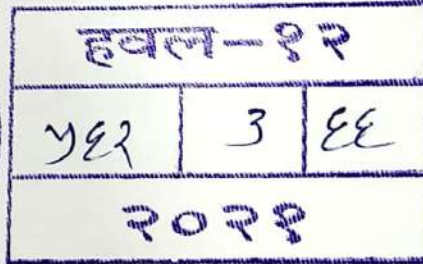 हवल-१२
५६२ 3 ६६
२०२१